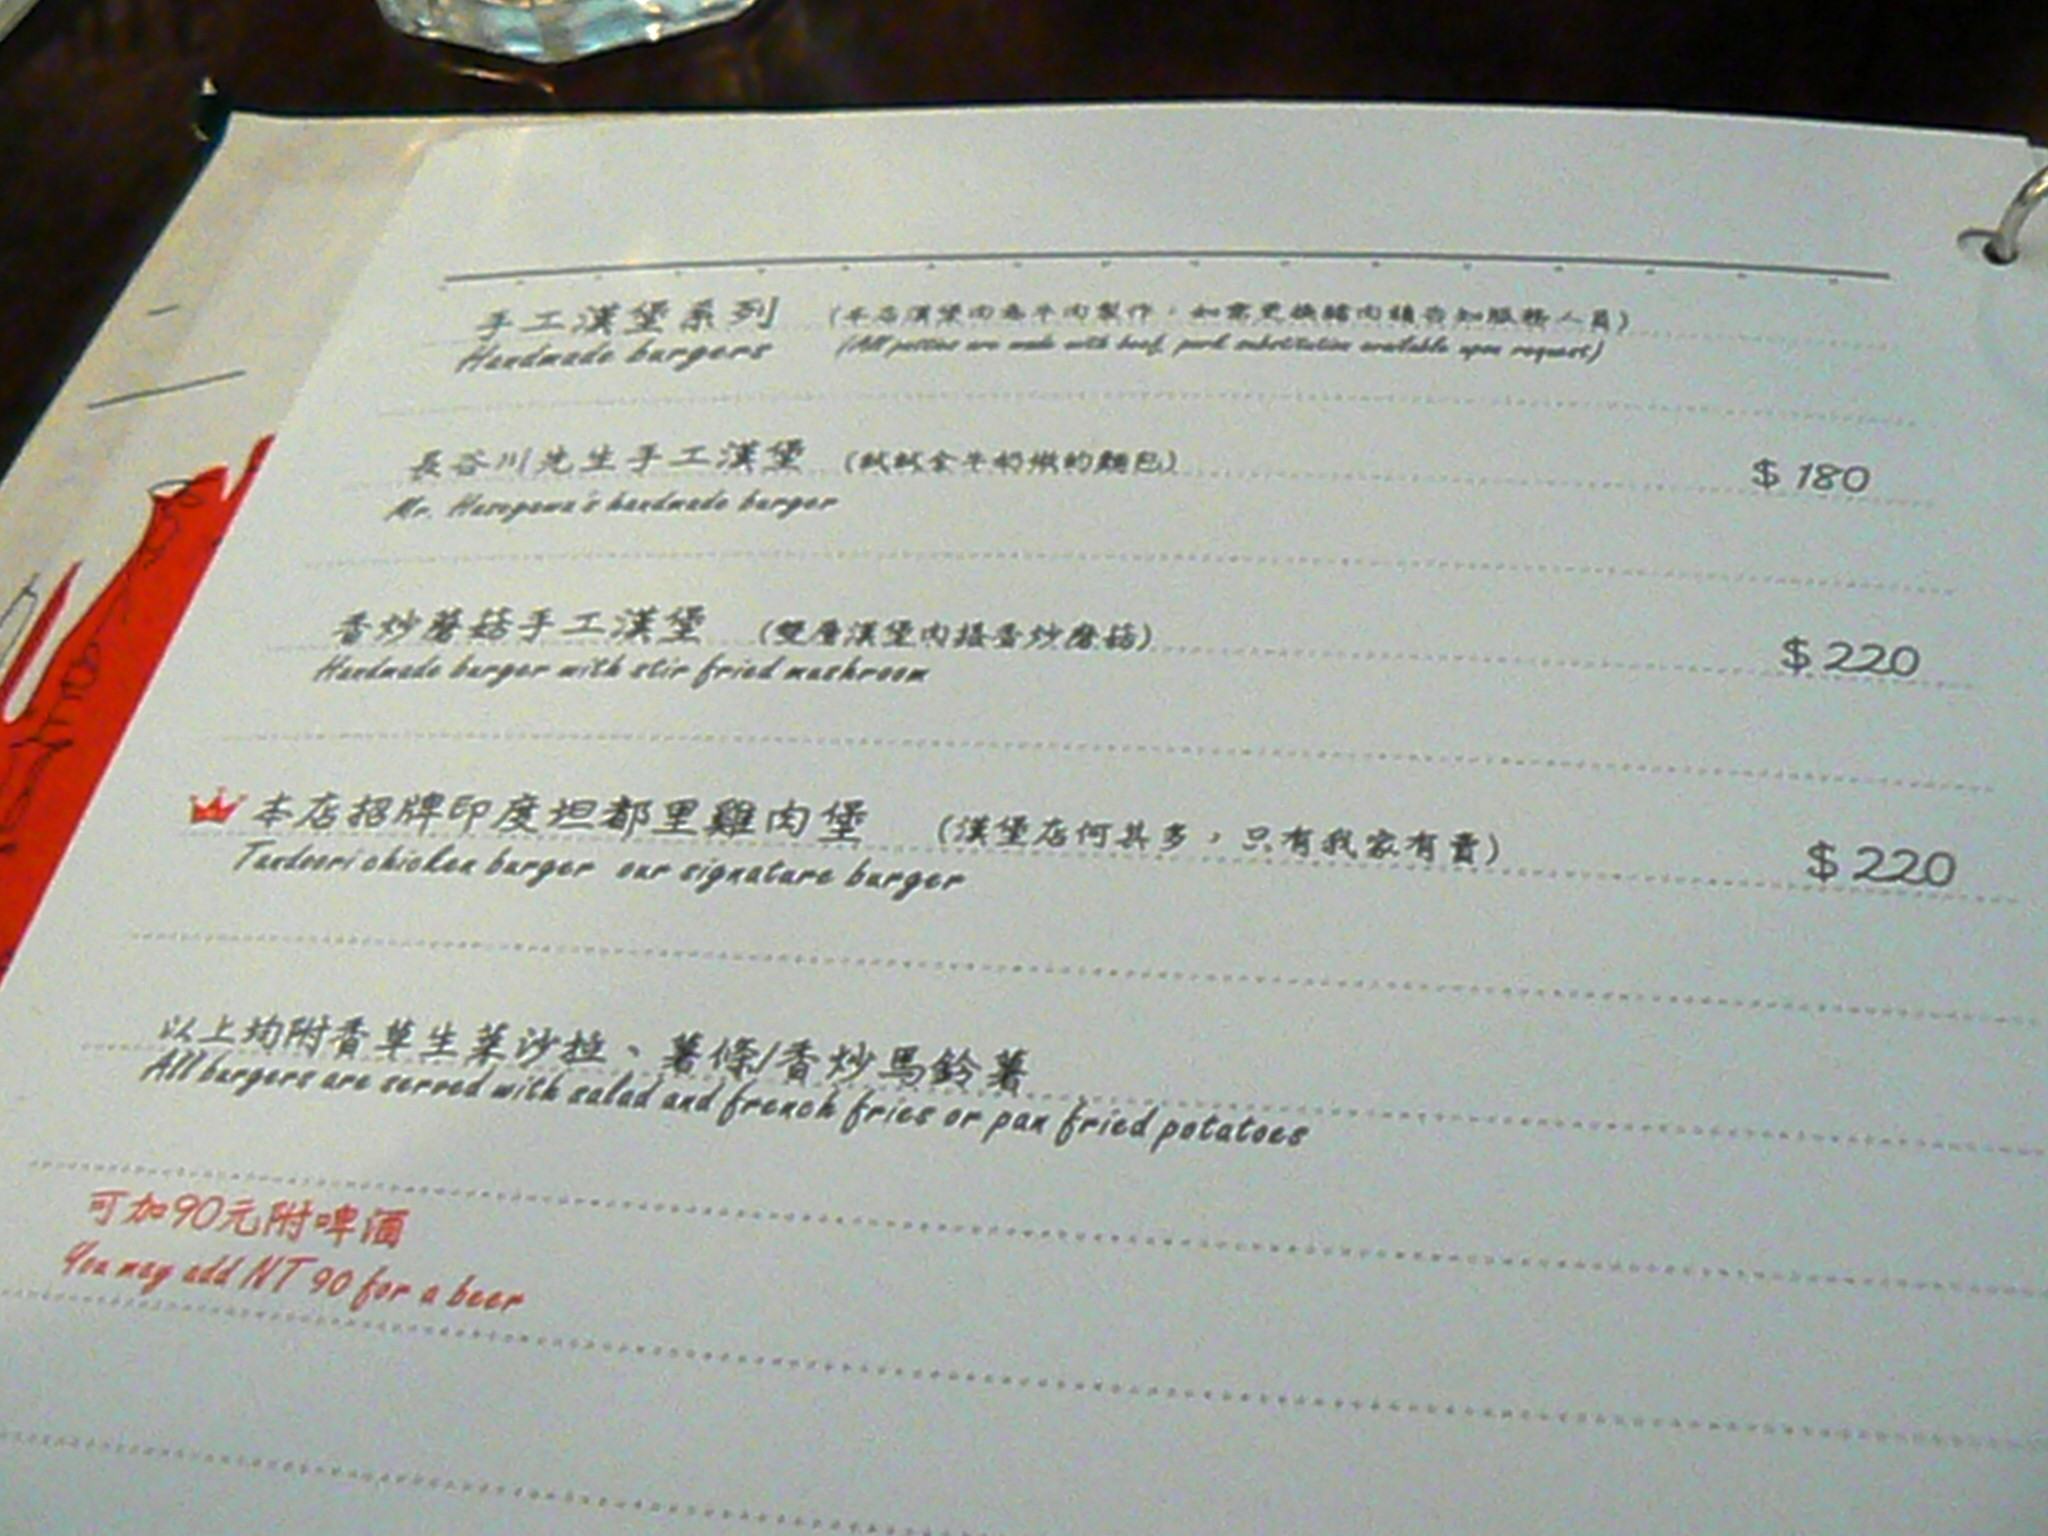 手工漢堡系列 (本店漢堡肉為牛肉製作，如需更換豬肉請告知服務人員)
Handmade burgers (All patties are made with beef, pork substitution available upon request)
長谷川先生手工漢堡 (試試全牛奶揉的麵包) $ 180
Mr. Hasegawa's handmade burger
香炒蘑菇手工漢堡 (雙層漢堡肉搭香炒蘑菇) $ 220
Handmade burger with stir fried mushroom
本店招牌印度坦都里雞肉堡 (漢堡店何其多，只有我家有賣) $ 220
Tandoori chicken burger our signature burger
以上均附香草生菜沙拉、薯條/香炒馬鈴薯
All burgers are serred with salad and french fries or pan fried potatoes
可加90元附啤酒
You may add NT 90 for a beer